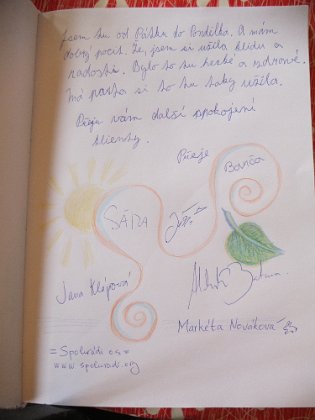 Jsem tu od Pátku do Pondělka. A mám
dobrý pocit. Že jsem si užila klidu a
radosti. Bylo to tu hezké a zdravé.
Má parta si to tu taky užila.
Přeju vám další spokojené
klienty.
Přeje
Barča
SÁRA
Jana Klápová
Markéta Nováková
= Spolurádi o.s =
www.spoluradi.org